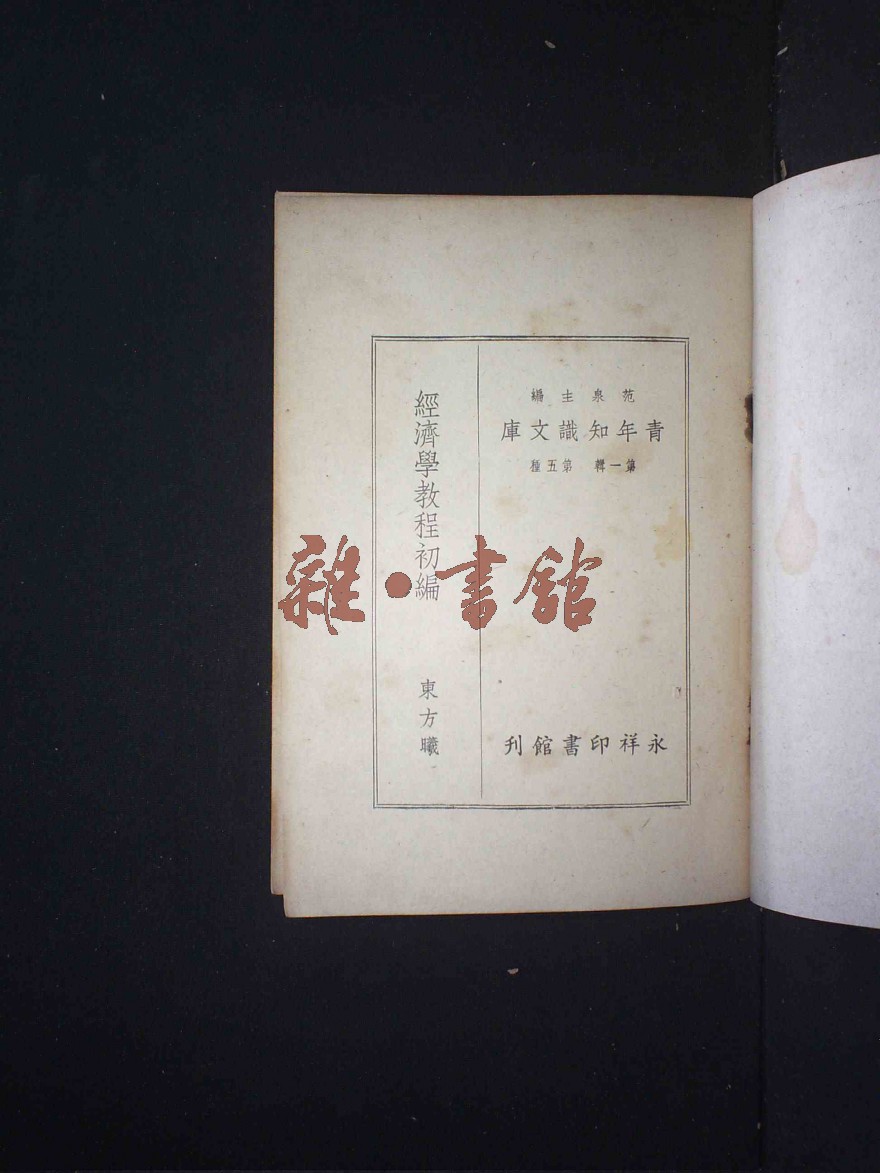 范泉主編
青年知識文庫
第一輯 第五種
永祥印書館刊
經濟學教程初編
東方曦
雜·書館